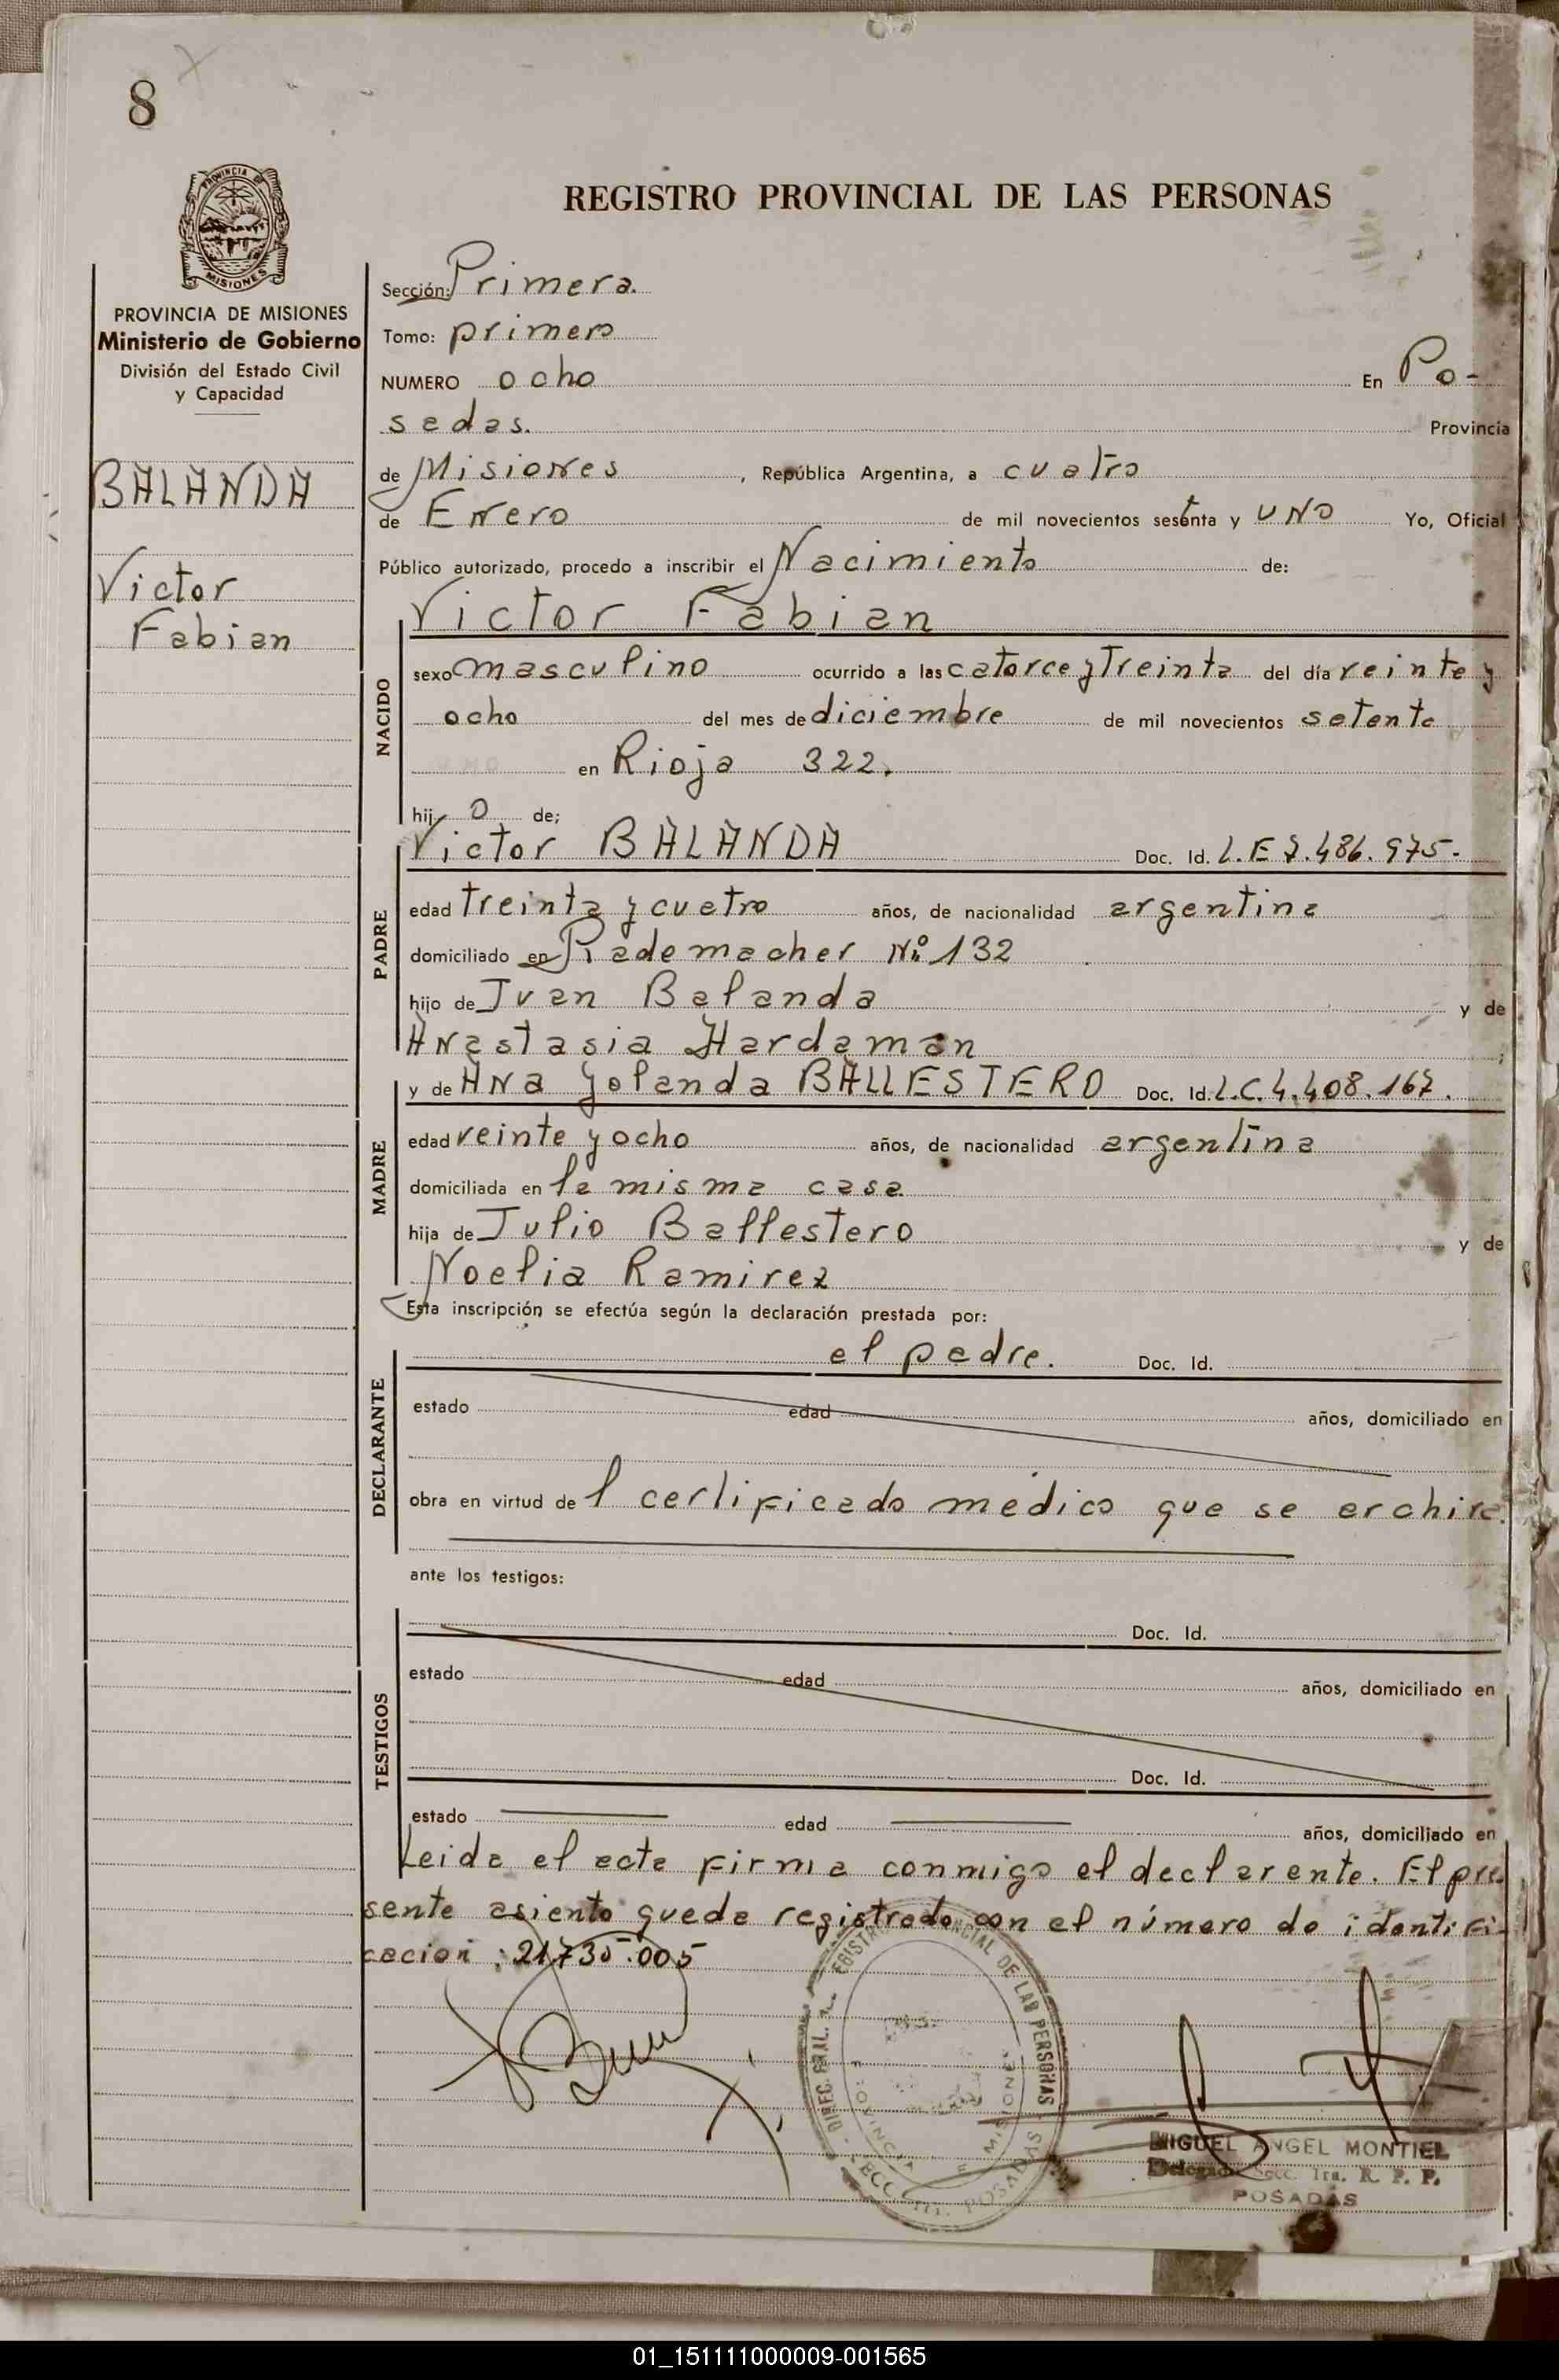 8
REGISTRO PROVINCIAL DE LAS PERSONAS
PROVINCIA DE
MISIONES
PROVINCIA DE MISIONES
Ministerio de Gobierno
División del Estado Civil
y Capacidad
BALANDA
Victor
Fabian
Sección: Primera.
Tomo: primero
NUMERO ocho En Po-
sadas. Provincia
de Misiones, República Argentina, a cuatro
de Enero de mil novecientos setenta y uno Yo, Oficial
Público autorizado, procedo a inscribir el Nacimiento de:
NACIDO
Victor Fabian
sexo masculino ocurrido a las catorce y Treinta del día veinte y
ocho del mes de diciembre de mil novecientos setenta
en Rioja 322.
hijo de;
PADRE
Victor BALANDA Doc. Id. L.E 7.486.975.-
edad treinta y cuatro años, de nacionalidad argentina
domiciliado en Rademacher Nº 132
hijo de Juan Balanda y de
Anastasia Hardaman;
MADRE
y de Ana Yolanda BALLESTERO Doc. Id. L.C. 4.408.167.
edad veinte y ocho años, de nacionalidad argentina
domiciliada en la misma casa
hija de Julio Ballestero y de
Noelia Ramirez
Esta inscripción se efectúa según la declaración prestada por:
DECLARANTE
el padre. Doc. Id.
estado edad años, domiciliado en
obra en virtud del certificado médico que se archiva.
ante los testigos:
TESTIGOS
Doc. Id.
estado edad años, domiciliado en
Doc. Id.
estado edad años, domiciliado en
Leida el acta firma conmigo el declarente. El pre
sente asiento queda registrado con el número de identifi-
cacion: 21.735.005
DIREC. GRAL. REGISTRO PROVINCIAL DE LAS PERSONAS
PROVINCIA MISIONES
SECC. 1ra. POSADAS
MIGUEL ANGEL MONTIEL
Delegado Secc. 1ra. R. P. P.
POSADAS
01_151111000009-001565